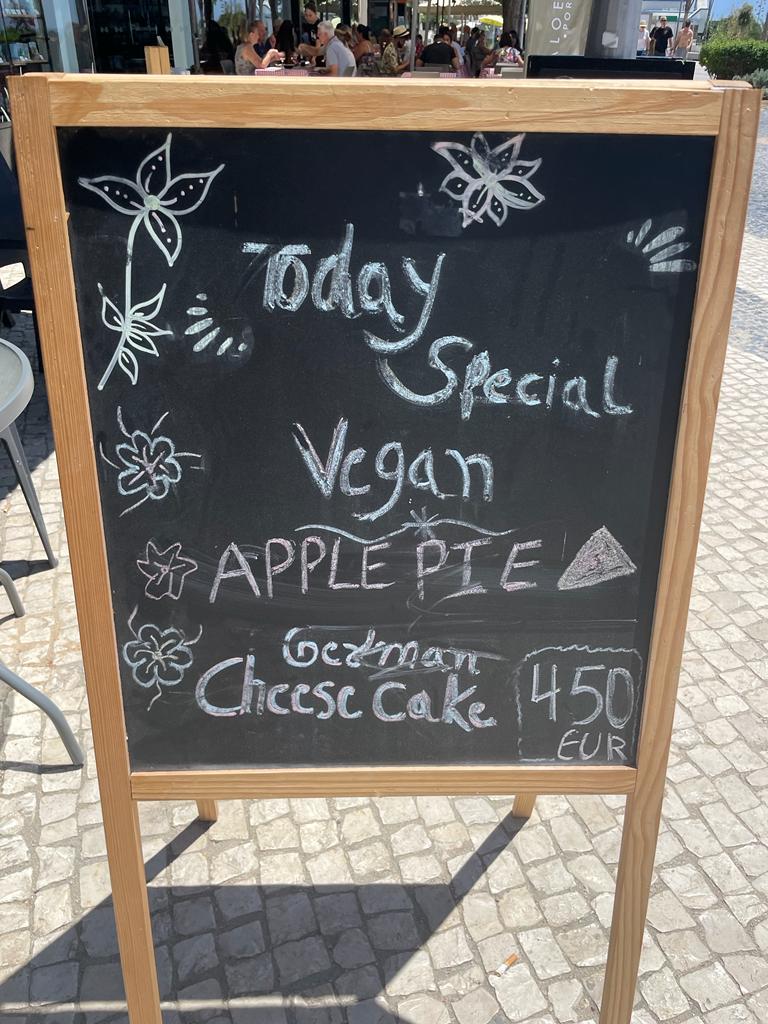 LOE
POR
Today
Special
Vegan
APPLE PIE
German
Cheese Cake
450
EUR